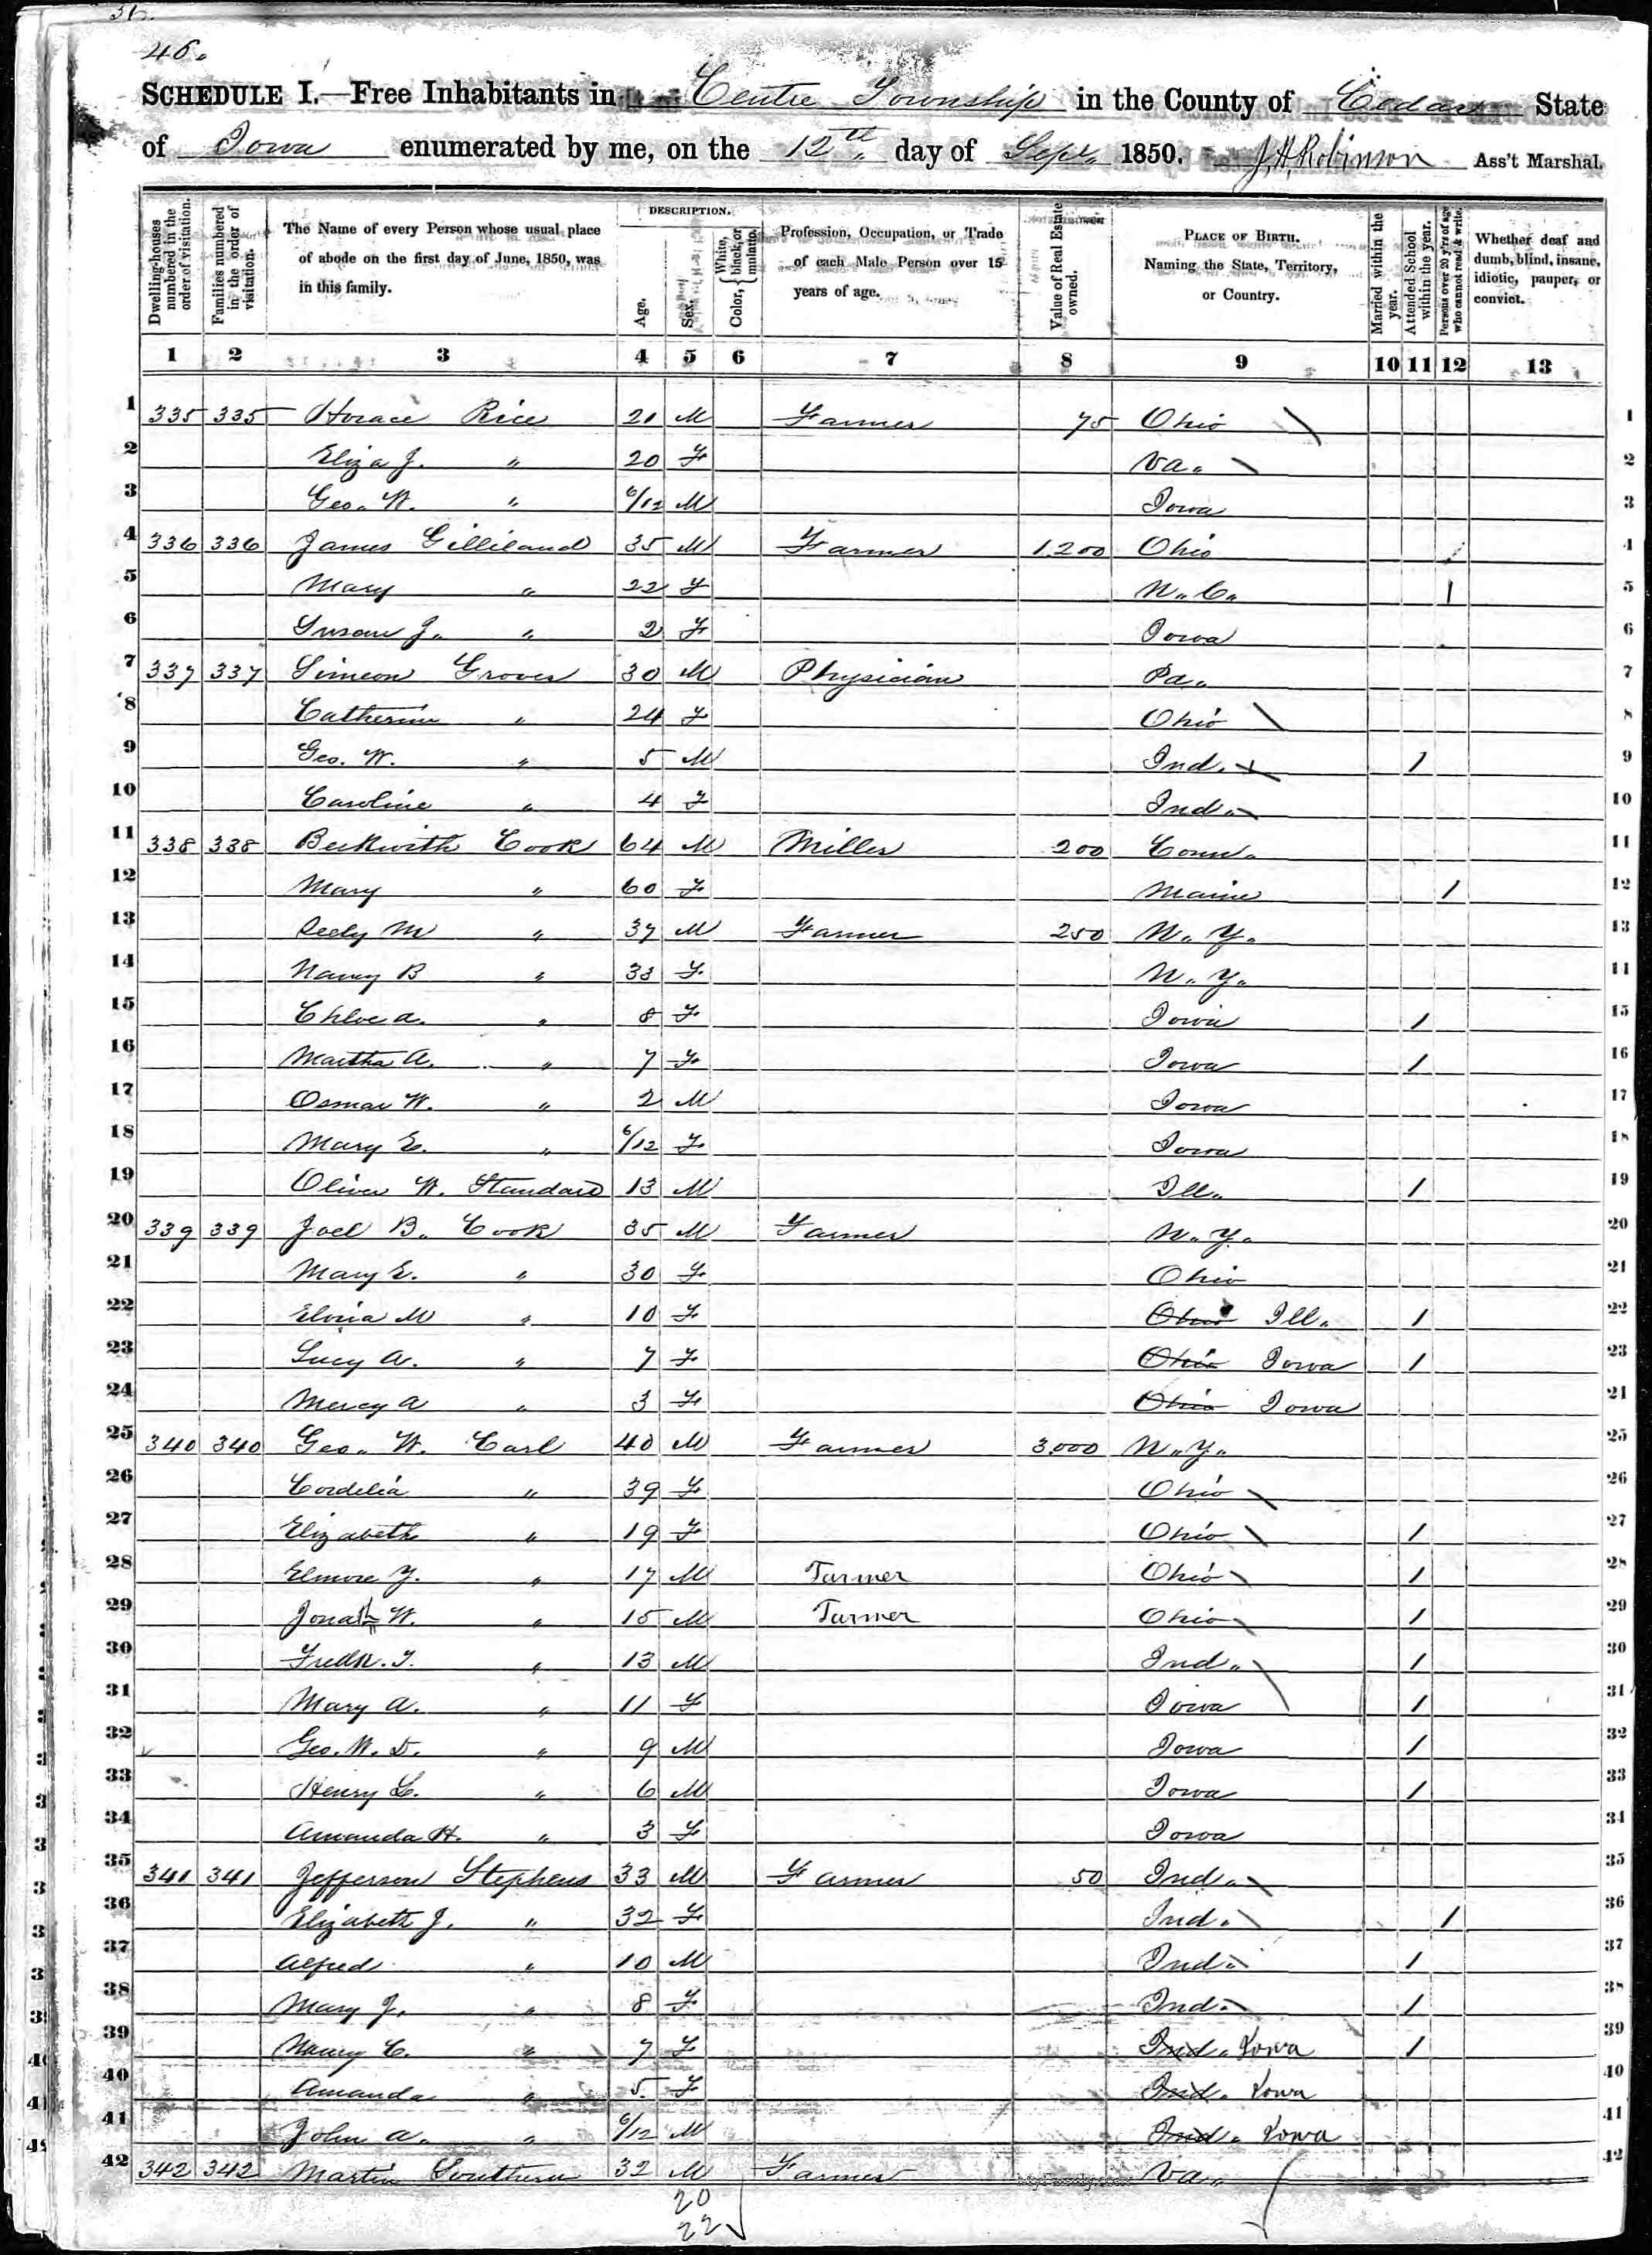 46.
SCHEDULE I.—Free Inhabitants in Centre Township in the County of Cedar State
of Iowa enumerated by me, on the 12th day of Sept. 1850. J. H. Robinson Ass't Marshal.
Dwelling-houses numbered in the order of visitation.
Families numbered in the order of visitation.
The Name of every Person whose usual place of abode on the first day of June, 1850, was in this family.
DESCRIPTION.
Age.
Sex.
Color, { White, black, or mulatto.
Profession, Occupation, or Trade of each Male Person over 15 years of age.
Value of Real Estate owned.
PLACE OF BIRTH. Naming the State, Territory, or Country.
Married within the year.
Attended School within the year.
Persons over 20 y'rs of age who cannot read & write.
Whether deaf and dumb, blind, insane, idiotic, pauper, or convict.
1 2 3 4 5 6 7 8 9 10 11 12 13
1 335 335 Horace Rice 21 M Farmer 75 Ohio 1
2 Eliza J. " 20 F Va. 2
3 Geo. W. " 6/12 M Iowa 3
4 336 336 James Gilliland 35 M Farmer 1200 Ohio 4
5 Mary " 22 F N. C. 1 5
6 Susan J. " 2 F Iowa 6
7 337 337 Simeon Grover 30 M Physician Pa. 7
8 Catherine " 24 F Ohio 8
9 Geo. W. " 5 M Ind. 1 9
10 Caroline " 4 F Ind. 10
11 338 338 Beckwith Cook 64 M Miller 200 Conn. 11
12 Mary " 60 F Maine 1 12
13 Seely M " 37 M Farmer 250 N. Y. 13
14 Nancy B " 33 F N. Y. 14
15 Chloe A. " 8 F Iowa 1 15
16 Martha A. " 7 F Iowa 1 16
17 Osmar W. " 2 M Iowa 17
18 Mary E. " 6/12 F Iowa 18
19 Oliver W. Standard 13 M Ill. 1 19
20 339 339 Joel B. Cook 35 M Farmer N. Y. 20
21 Mary E. " 30 F Ohio 21
22 M " 10 F Ohio Ill. 1 22
23 Lucy A. " 7 F Ohio Iowa 1 23
24 Mercy A " 3 F Ohio Iowa 24
25 340 340 Geo. W. Carl 40 M Farmer 3000 N. Y. 25
26 Cordelia " 39 F Ohio 26
27 Elizabeth " 19 F Ohio 1 27
28 Elmore Y. " 17 M Farmer Ohio 1 28
29 Jonath W. " 15 M Farmer Ohio 1 29
30 Fredk. T. " 13 M Ind. 1 30
31 Mary A. " 11 F Iowa 1 31
32 Geo. W. D. " 9 M Iowa 1 32
33 Henry L. " 6 M Iowa 1 33
34 Amanda H. " 3 F Iowa 34
35 341 341 Jefferson Stephens 33 M Farmer 50 Ind. 35
36 Elizabeth J. " 32 F Ind. 1 36
37 Alfred " 10 M Ind. 1 37
38 Mary J. " 8 F Ind. 1 38
39 Nancy C. " 7 F Ind. Iowa 1 39
40 Amanda " 5 F Ind. Iowa 40
41 John A. " 6/12 M Ind. Iowa 41
42 342 342 Martin Southern 32 M Farmer Va. 42
20
22